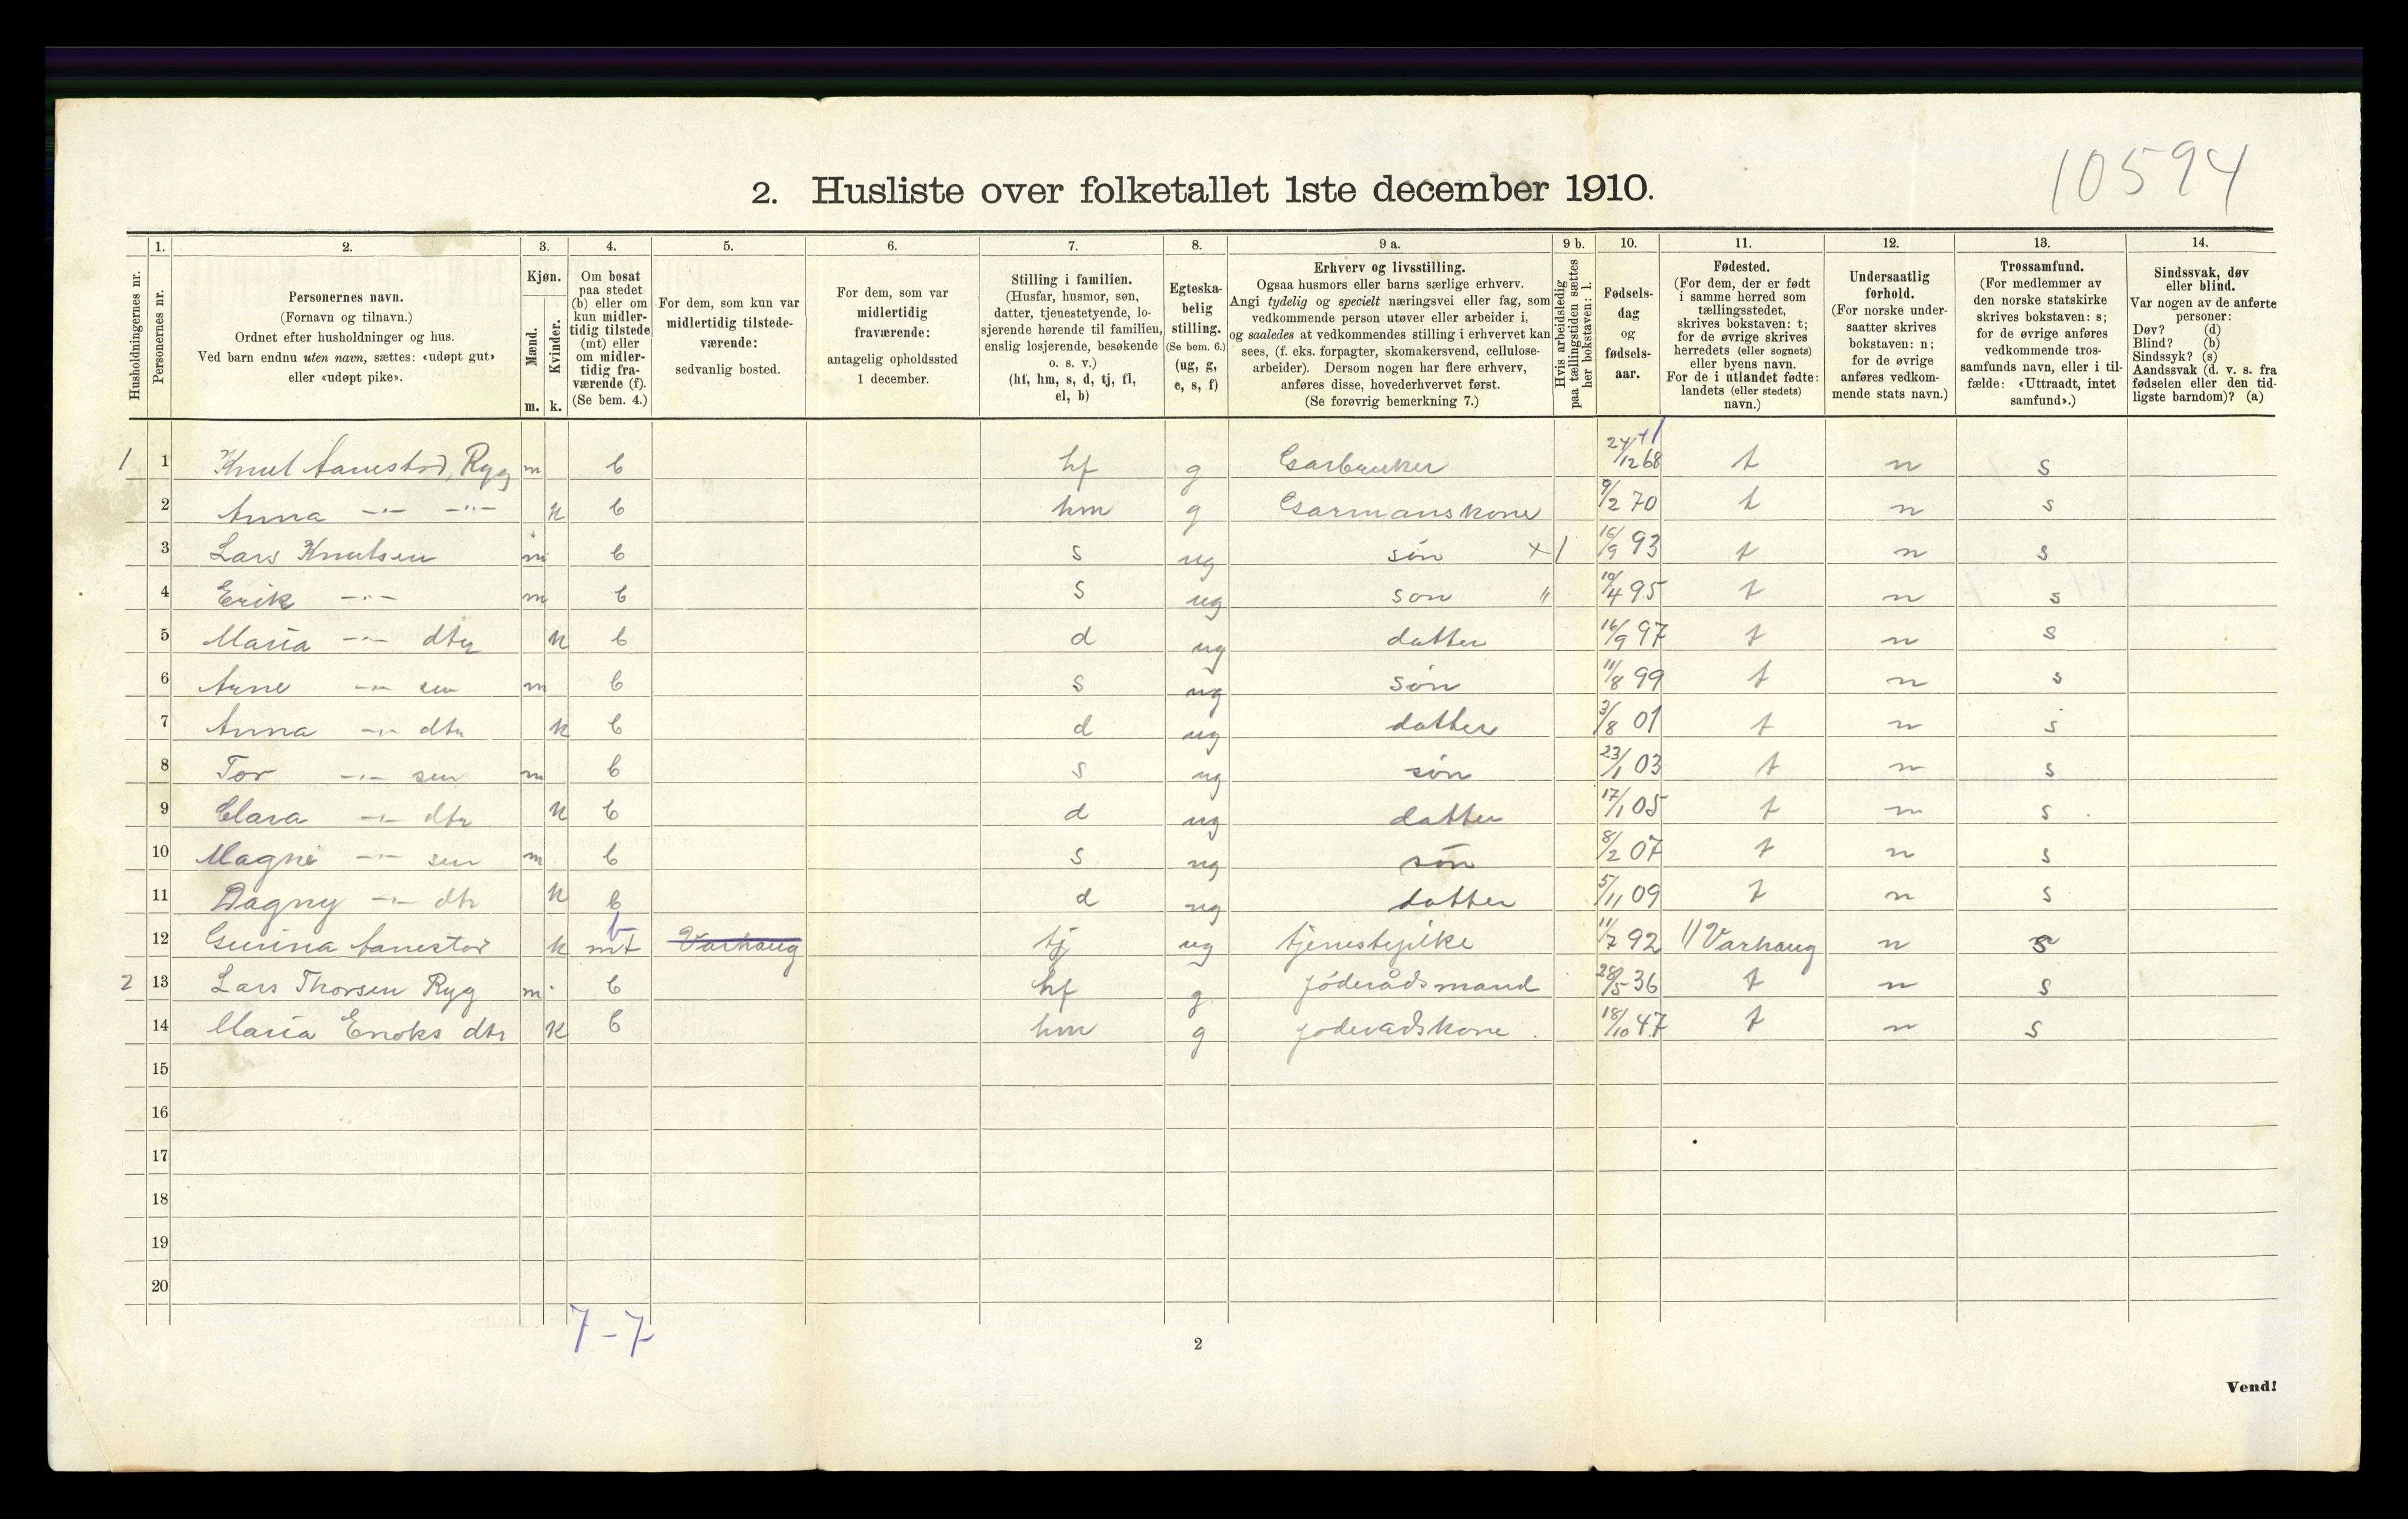 10594
2. Husliste over folketallet 1ste december 1910.
1. 2. 3. 4. 5. 6. 7. 8. 9 a. 9 b. 10. 11. 12. 13. 14.
Husholdningernes nr.
Personernes nr.
Personernes navn.
(Fornavn og tilnavn.)
Ordnet efter husholdninger og hus.
Ved barn endnu uten navn, sættes: «udøpt gut»
eller «udøpt pike».
Kjøn.
Mænd.
Kvinder.
m. k.
Om bosat
paa stedet
(b) eller om
kun midler-
tidig tilstede
(mt) eller
om midler-
tidig fra-
værende (f).
(Se bem. 4.)
For dem, som kun var
midlertidig tilstede-
værende:
sedvanlig bosted.
For dem, som var
midlertidig
fraværende:
antagelig opholdssted
1 december.
Stilling i familien.
(Husfar, husmor, søn,
datter, tjenestetyende, lo-
sjerende hørende til familien,
enslig losjerende, besøkende
o. s. v.)
(hf, hm, s, d, tj, fl,
el, b)
Egteska-
belig
stilling.
(Se bem. 6.)
(ug, g,
e, s, f)
Erhverv og livsstilling.
Ogsaa husmors eller barns særlige erhverv.
Angi tydelig og specielt næringsvei eller fag, som
vedkommende person utøver eller arbeider i,
og saaledes at vedkommendes stilling i erhvervet kan
sees, (f. eks. forpagter, skomakersvend, cellulose-
arbeider). Dersom nogen har flere erhverv,
anføres disse, hovederhvervet først.
(Se forøvrig bemerkning 7.)
Hvis arbeidsledig
paa tællingstiden sættes
her bokstaven: l.
Fødsels-
dag
og
fødsels-
aar.
Fødested.
(For dem, der er født
i samme herred som
tællingsstedet,
skrives bokstaven: t;
for de øvrige skrives
herredets (eller sognets)
eller byens navn.
For de i utlandet fødte:
landets (eller stedets)
navn.)
Undersaatlig
forhold.
(For norske under-
saatter skrives
bokstaven: n;
for de øvrige
anføres vedkom-
mende stats navn.)
Trossamfund.
(For medlemmer av
den norske statskirke
skrives bokstaven: s;
for de øvrige anføres
vedkommende tros-
samfunds navn, eller i til-
fælde: «Uttraadt, intet
samfund».)
Sindssvak, døv
eller blind.
Var nogen av de anførte
personer:
Døv? (d)
Blind? (b)
Sindssyk? (s)
Aandssvak (d. v. s. fra
fødselen eller den tid-
ligste barndom)? (a)
1 1 Knut Aanestad, Ryg m b hf g Garbruker 24/12 68 t n s
2 Anna -"- -"- k b hm g Garmanskone 9/2 70 t n s
3 Lars Knutsen m b s ug søn x/ 16/9 93 t n s
4 Erik -"- m b s ug son " 10/4 95 t n s
5 Maria -"- dtr k b d ug datter 16/9 97 t n s
6 Arne -"- sen m b s ug søn 11/8 99 t n s
7 Anna -"- dtr k b d ug datter 3/8 01 t n s
8 Tor -"- sen m b s ug søn 23/1 03 t n s
9 Clara -"- dtr k b d ug datter 17/1 05 t n s
10 Magne -"- sen m b s ug søn 8/2 07 t n s
11 Dagny -"- dtr k b d ug datter 5/11 09 t n s
12 Gurina Aanestad k b mt Varhaug tj ug tjenestepike 11/7 92 Varhaug n s
2 13 Lars Thorsen Ryg m b hf g føderådsmand 28/5 36 t n s
14 Maria Enoks dtr k b hm g føderådskone 18/10 47 t n s
15
16
17
18
19
20
7-7
2
Vend!